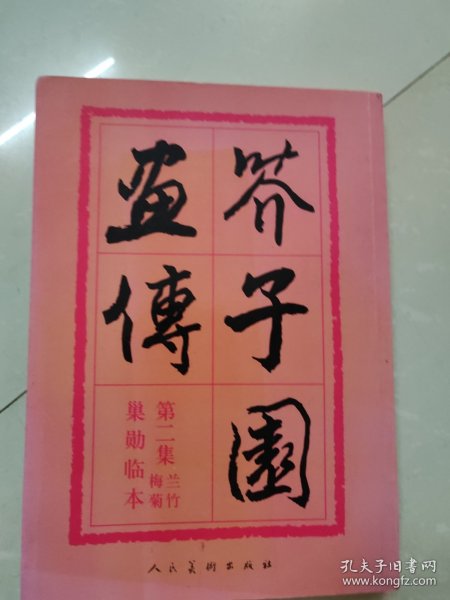 芥子園
畫傳
第二集
兰竹
梅菊
巢勋临本
人民美術出版社
孔夫子旧书网
www.kongfz.com